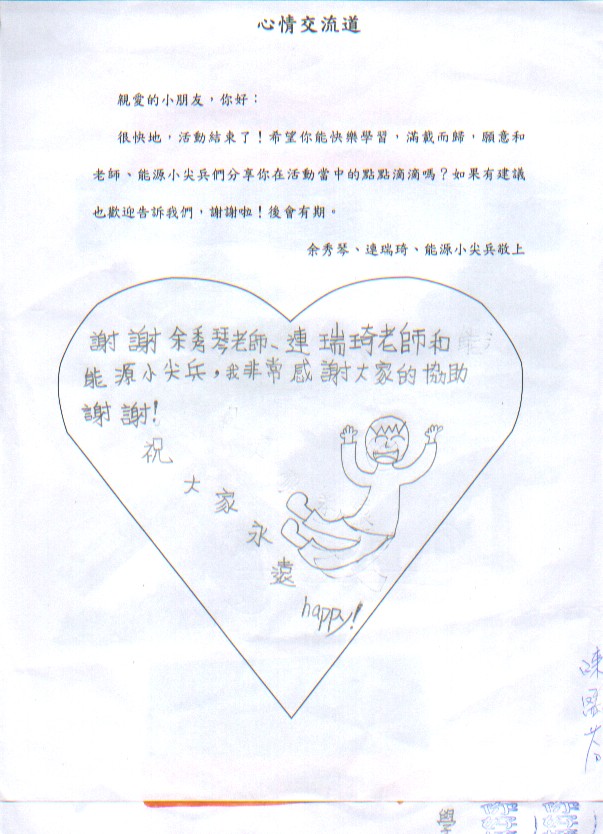 心情交流道
親愛的小朋友，你好：
很快地，活動結束了！希望你能快樂學習，滿載而歸，願意和
老師、能源小尖兵們分享你在活動當中的點點滴滴嗎？如果有建議
也歡迎告訴我們，謝謝啦！後會有期。
余秀琴、連瑞琦、能源小尖兵敬上
謝謝余秀琴老師、連瑞琦老師和
能源小尖兵，我非常感謝大家的協助
謝謝！
祝
大家
永
遠
happy!
學